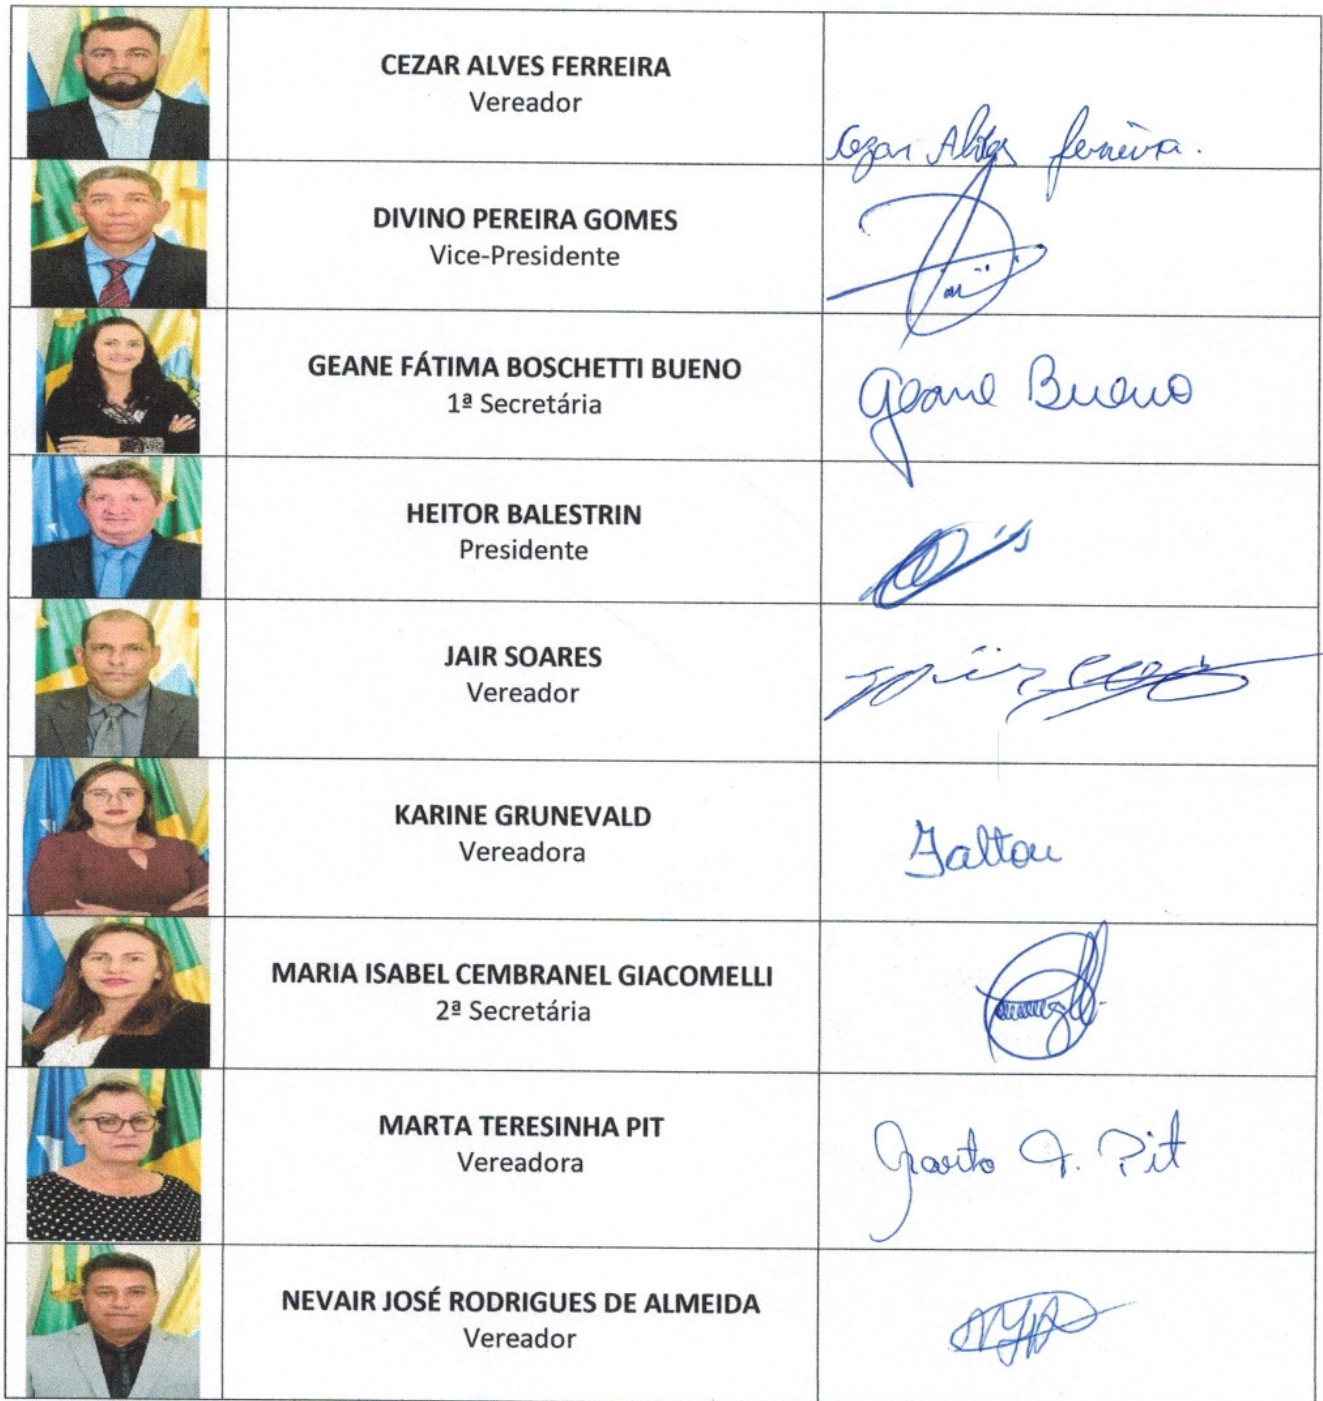 CEZAR ALVES FERREIRA
Vereador
Cezar Alves ferreira.
DIVINO PEREIRA GOMES
Vice-Presidente
GEANE FÁTIMA BOSCHETTI BUENO
1ª Secretária
Geane Bueno
HEITOR BALESTRIN
Presidente
JAIR SOARES
Vereador
KARINE GRUNEVALD
Vereadora
Faltou
MARIA ISABEL CEMBRANEL GIACOMELLI
2ª Secretária
MARTA TERESINHA PIT
Vereadora
Marta T. Pit
NEVAIR JOSÉ RODRIGUES DE ALMEIDA
Vereador